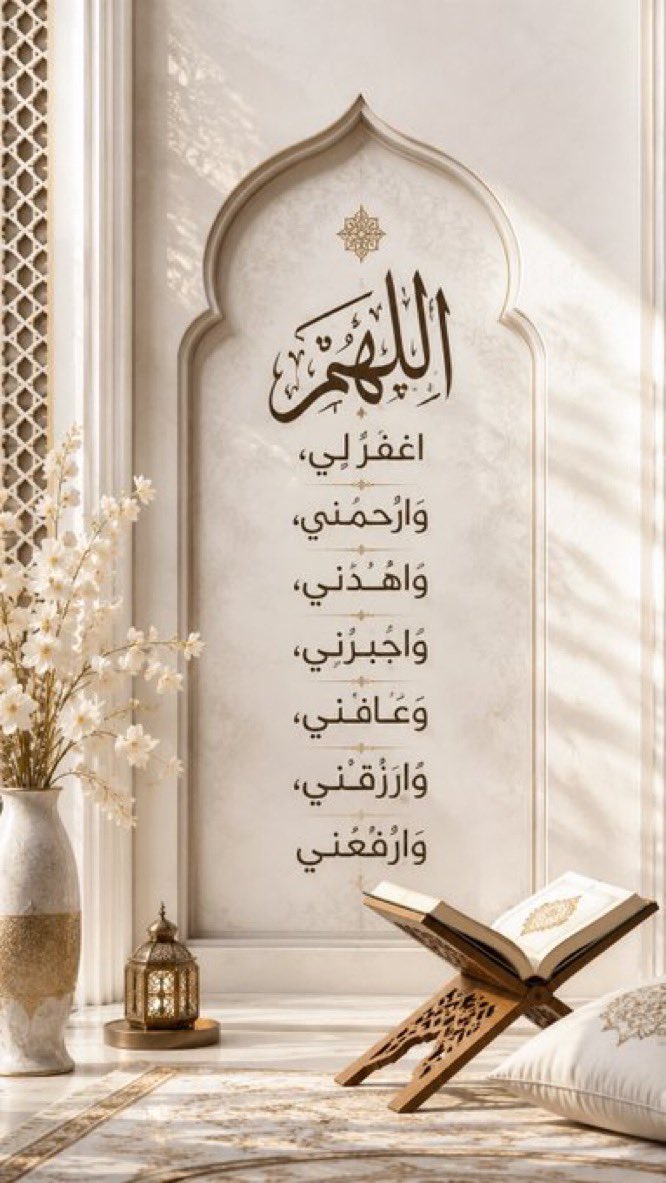 اللهم
اغفر لي،
وارحمني،
واهدني،
واجبرني،
وعافني،
وارزقني،
وارفعني